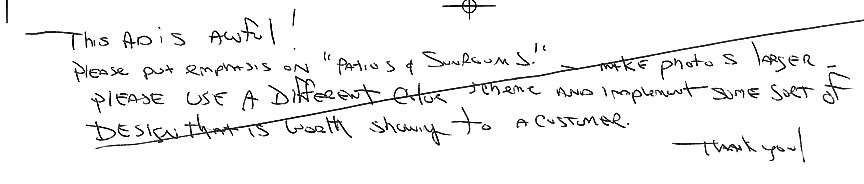 This AD is Awful!
Please put emphasis on "Patios & Sunrooms!" - make photos larger -
Please use a different color scheme and implement some sort of
design that is worth showing to a customer.
Thank you!